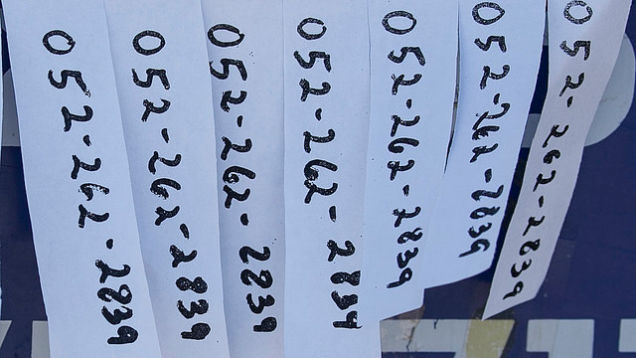 052-262-2839
052-262-2839
052-262-2839
052-262-2839
052-262-2839
052-262-2839
052-262-2839